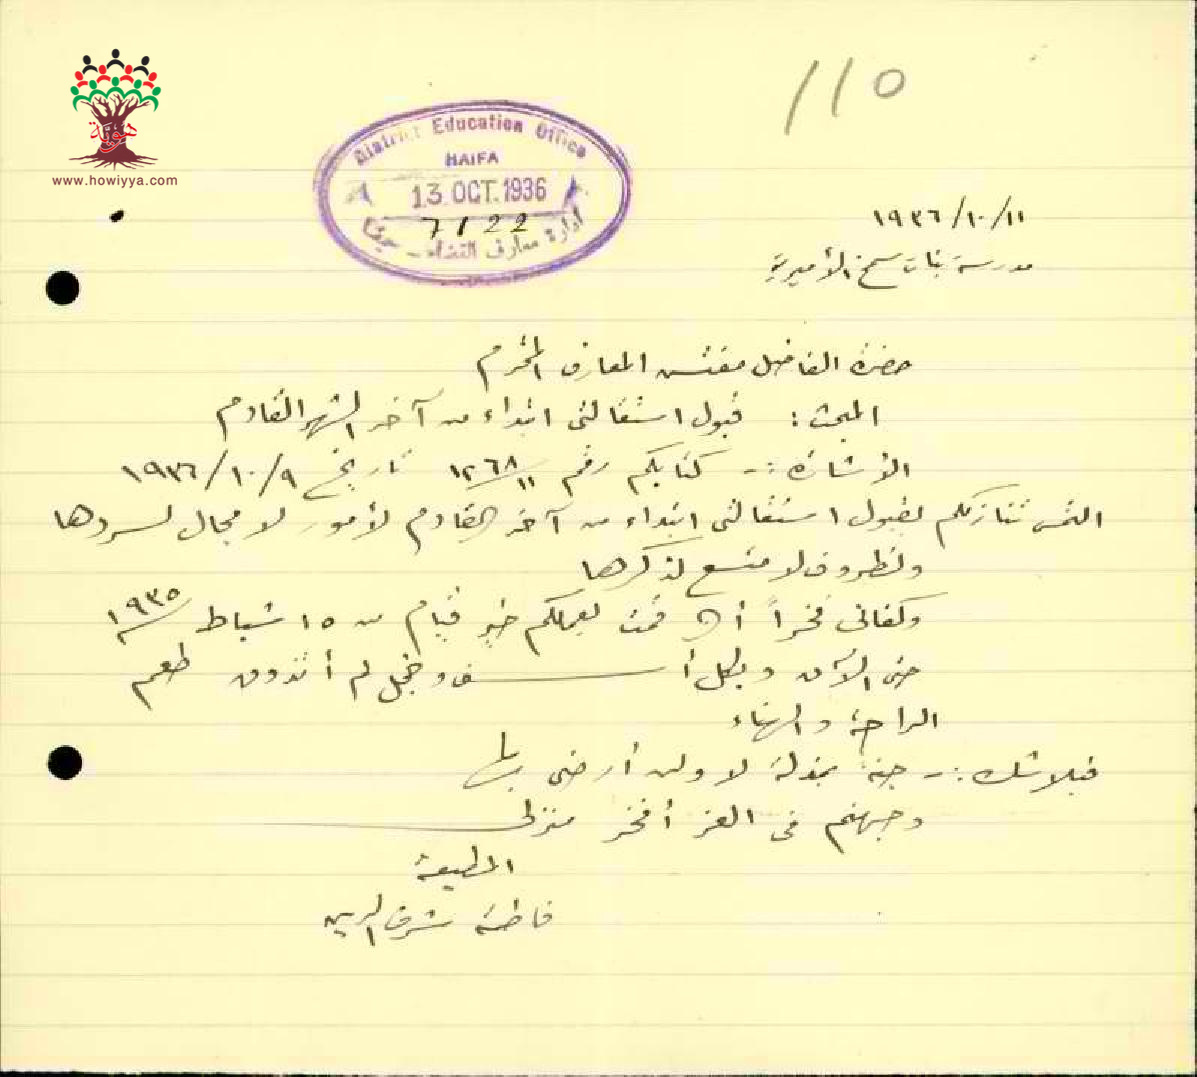 هوية
www.howiyya.com
110
District Education Office
HAIFA
13 OCT. 1936
7122
ادارة معارف القضاء - حيفا
١٩٣٦/١٠/١١
مدرسة بنات سمخ الأميرية
حضرة الفاضل مفتش المعارف المحترم
المبحث : قبول استقالتي ابتداء من آخر الشهر القادم
الأشارة :- كتابكم رقم ١٢٦٨/١١ تاريخ ١٩٣٦/١٠/٩
التمس تنازلكم بقبول استقالتي ابتداء من آخر القادم لأمور لا مجال لسردها
ولظروف لا متسع لذكرها
وكفاني فخراً أن قمت بعملكم خير قيام من ١٥ شباط ١٩٣٥
حتى الآن وبكل أسف وخجل لم أتذوق طعم
الراحة والهناء
فبلا شك :- جنة بمذلة لا ولن أرضى بها
وجهنم في العز أفخر منزل
المطيعة
فاطمة شرف الدين